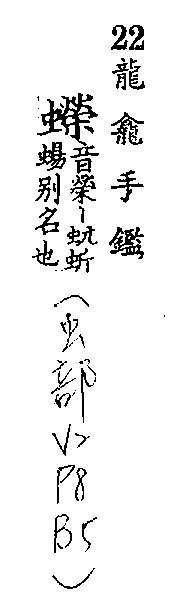 22龍龕手鑑
蠑音榮丨蚖蜥
蜴別名也
(虫部V2
P8
B5)